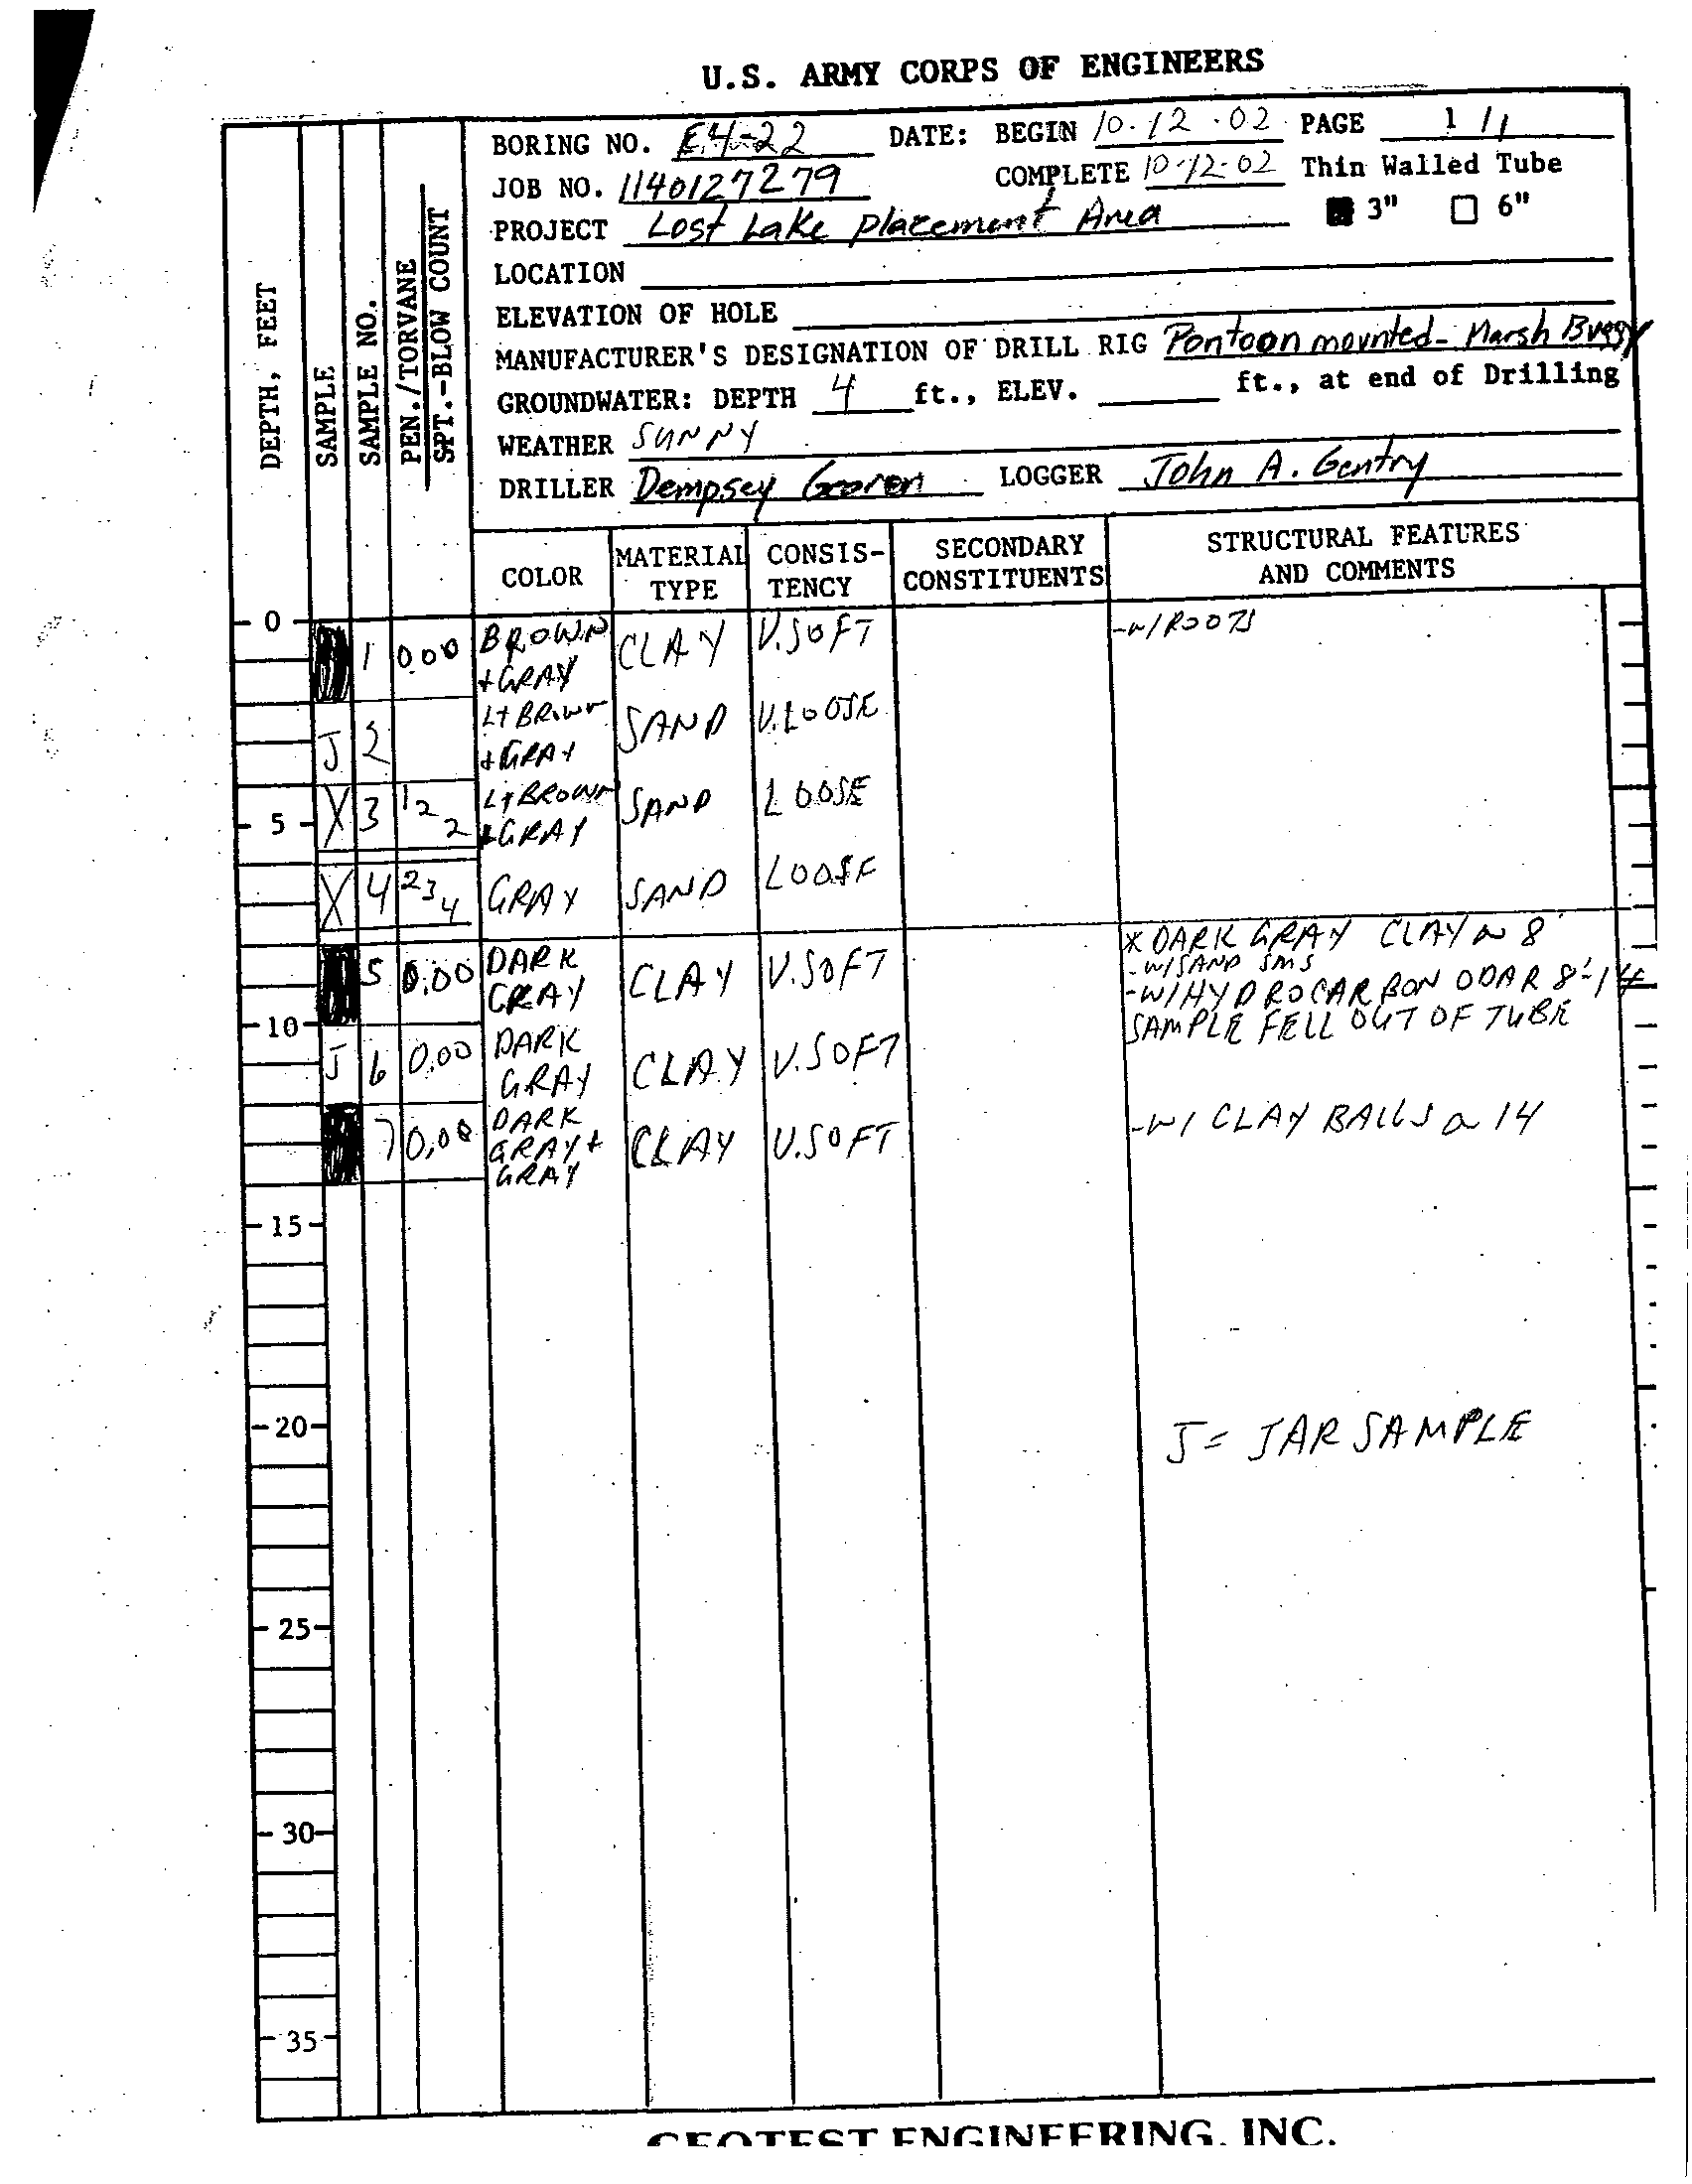 U.S. ARMY CORPS OF ENGINEERS
BORING NO. E4-22 DATE: BEGIN 10-12-02 PAGE 1 / 1
JOB NO. 1140127279 COMPLETE 10-12-02 Thin Walled Tube
PROJECT Lost Lake placement Area 3" 6"
LOCATION
ELEVATION OF HOLE
MANUFACTURER'S DESIGNATION OF DRILL RIG Pontoon mounted - Marsh Buggy
GROUNDWATER: DEPTH 4 ft., ELEV. ft., at end of Drilling
WEATHER SUNNY
DRILLER Dempsey LOGGER John A. Gentry
DEPTH, FEET
SAMPLE
SAMPLE NO.
PEN./TORVANE
SPT.-BLOW COUNT
COLOR MATERIAL TYPE CONSIS-TENCY SECONDARY CONSTITUENTS STRUCTURAL FEATURES AND COMMENTS
0
1 0.00 BROWN + GRAY CLAY V.SOFT -W/ROOTS
J 2 LT BROWN + GRAY SAND V.LOOSE
5 X 3 1 2 2 LT BROWN + GRAY SAND LOOSE
X 4 2 3 4 GRAY SAND LOOSE
* DARK GRAY CLAY @ 8'
5 0.00 DARK GRAY CLAY V.SOFT -W/SAND SMS
-W/HYDROCARBON ODAR 8'-14
10 SAMPLE FELL OUT OF TUBE
J 6 0.00 DARK GRAY CLAY V.SOFT
7 0.00 DARK GRAY + GRAY CLAY V.SOFT -W/ CLAY BALLS @ 14
15
20 J = JAR SAMPLE
25
30
35
GEOTEST ENGINEERING, INC.